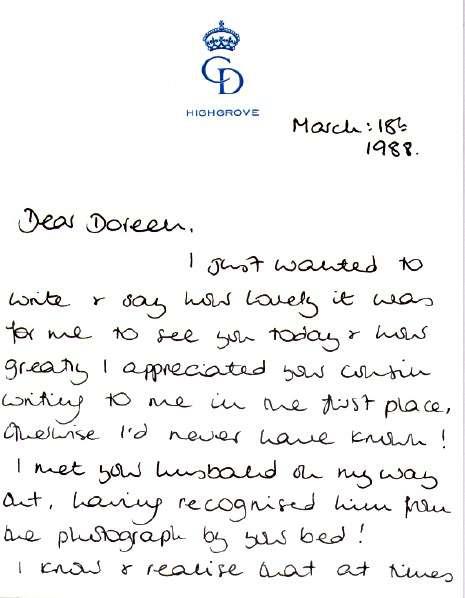 CD
HIGHGROVE
March: 18th
1988.
Dear Doreen,
I just wanted to
write & say how lovely it was
for me to see you today & how
greatly I appreciated your cousin
writing to me in the first place,
otherwise I'd never have known!
I met your husband on my way
out, having recognised him from
the photograph by your bed!
I know & realise that at times